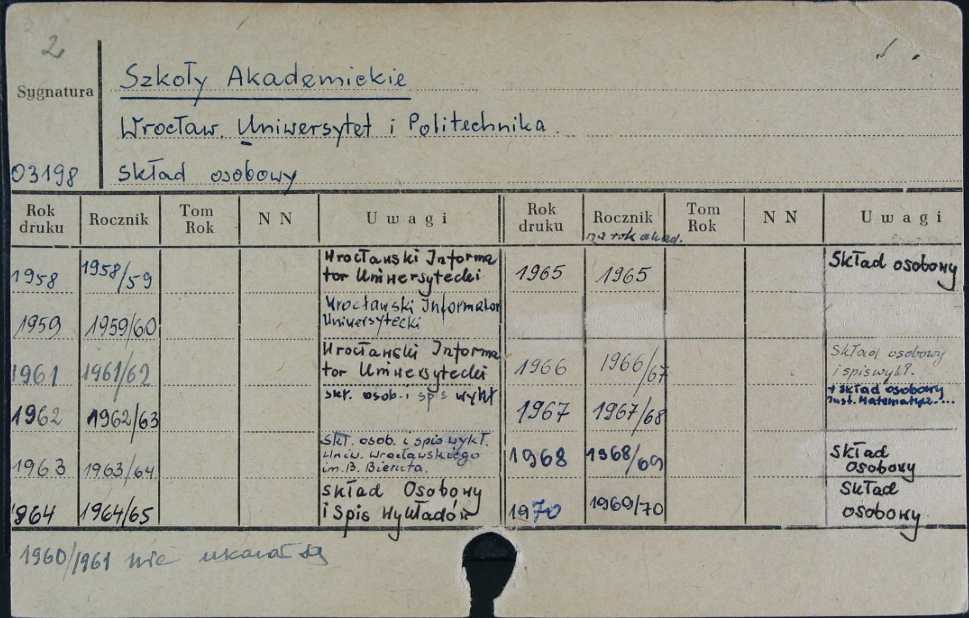 2
Sygnatura
Szkoły Akademickie
Wrocław. Uniwersytet i Politechnika
03198
skład osobowy
Rok druku Rocznik Tom Rok N N Uwagi Rok druku Rocznik na rok akad. Tom Rok N N Uwagi
1958 1958/59 Wrocławski Informa
tor Uniwersytecki
1965 1965 Skład osobowy
1959 1959/60 Wrocławski Informator
Uniwersytecki
1961 1961/62 Wrocławski Informa
tor Uniwersytecki
1966 1966/67 Skład osobowy
i spis wykł.
1962 1962/63 skł. osob. i spis wykł
1967 1967/68 + skład osobowy
Inst. Matematycz....
1963 1963/64 skł. osob. i spis wykł.
Uniw. Wrocławskiego
im. B. Bieruta.
1968 1968/69 Skład
osobowy
1964 1964/65 Skład Osobowy
i Spis Wykładów
1970 1969/70 Skład
osobowy
1960/1961 nie ukazał się